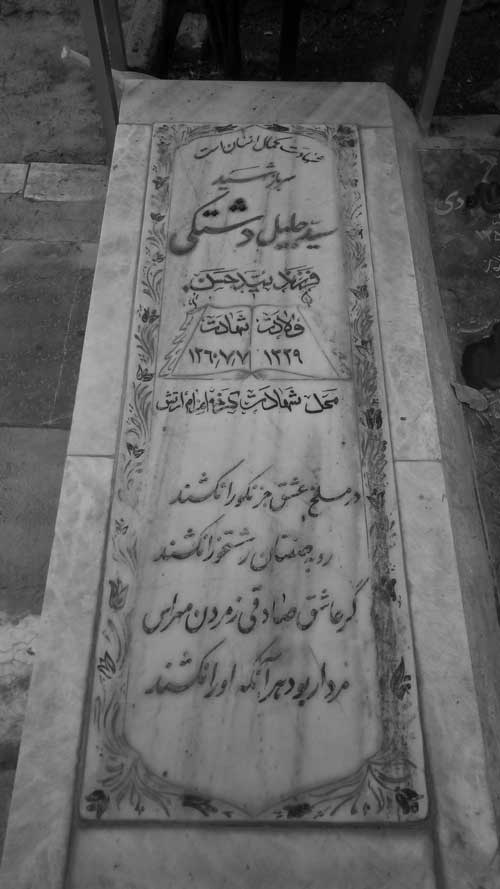 شهادت کمال انسان است
سرباز شهید
سید جلیل دشتکی
فرزند سید حسن
ولادت شهادت
۱۳۲۹ ۱۳۶۰/۷/۷
محل شهادت
در مسلخ عشق جز نکو را نکشند
روبه صفتان زشتخو را نکشند
گر عاشق صادقی ز مردن مهراس
مردار بود هر آنکه او را نکشند